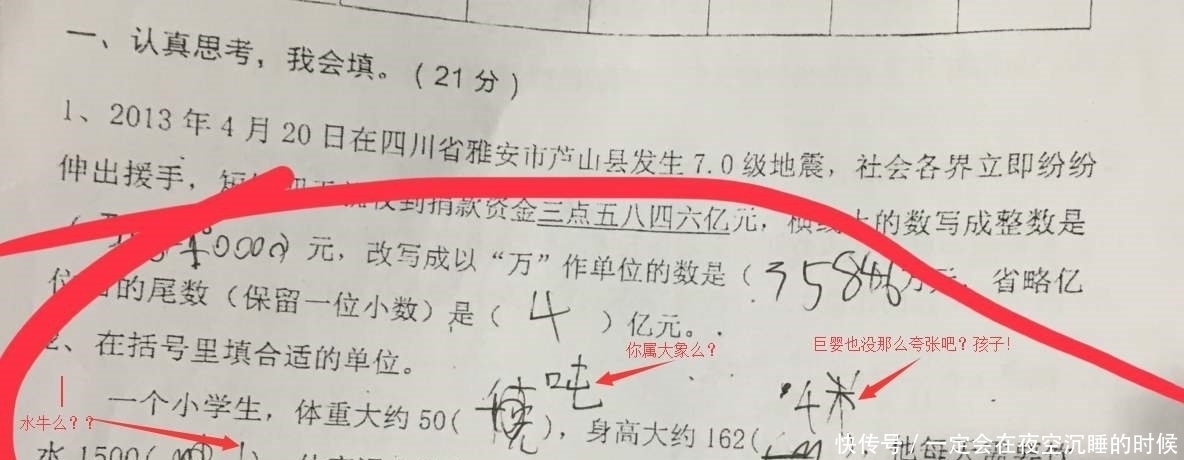 一、认真思考，我会填。（21分）
1、2013年4月20日在四川省雅安市芦山县发生7.0级地震，社会各界立即纷纷
伸出援手，收到捐款资金三点五八四六亿元，横线上的数写成整数是
（ 0000）元，改写成以“万”作单位的数是（35846万元，省略亿
位后的尾数（保留一位小数）是（ 4 ）亿元。
你属大象么？
巨婴也没那么夸张吧？孩子！
2、在括号里填合适的单位。
吨
米
水牛么？？
一个小学生，体重大约50（ ），身高大约162（ ），他每天需要
水1500（
快传号/一定会在夜空沉睡的时候